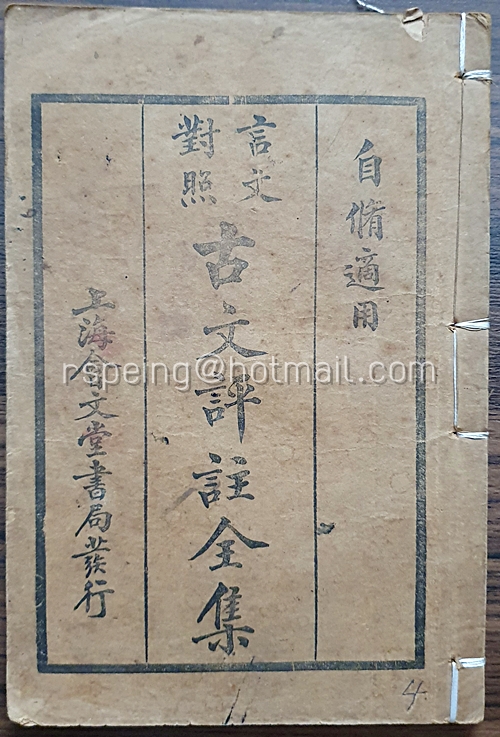 自脩適用
言文
對照
古文評註全集
上海會文堂書局發行
4
rspeing@hotmail.com